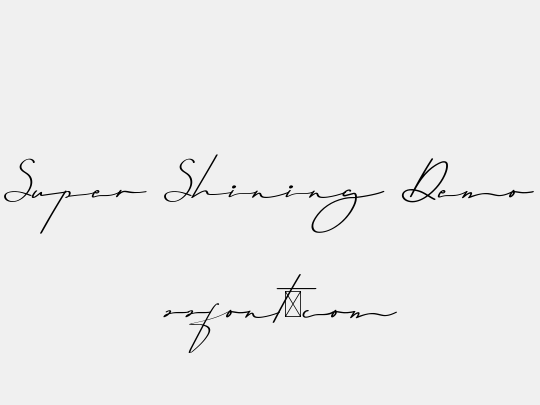 Super Shining Demo
ssfont□com